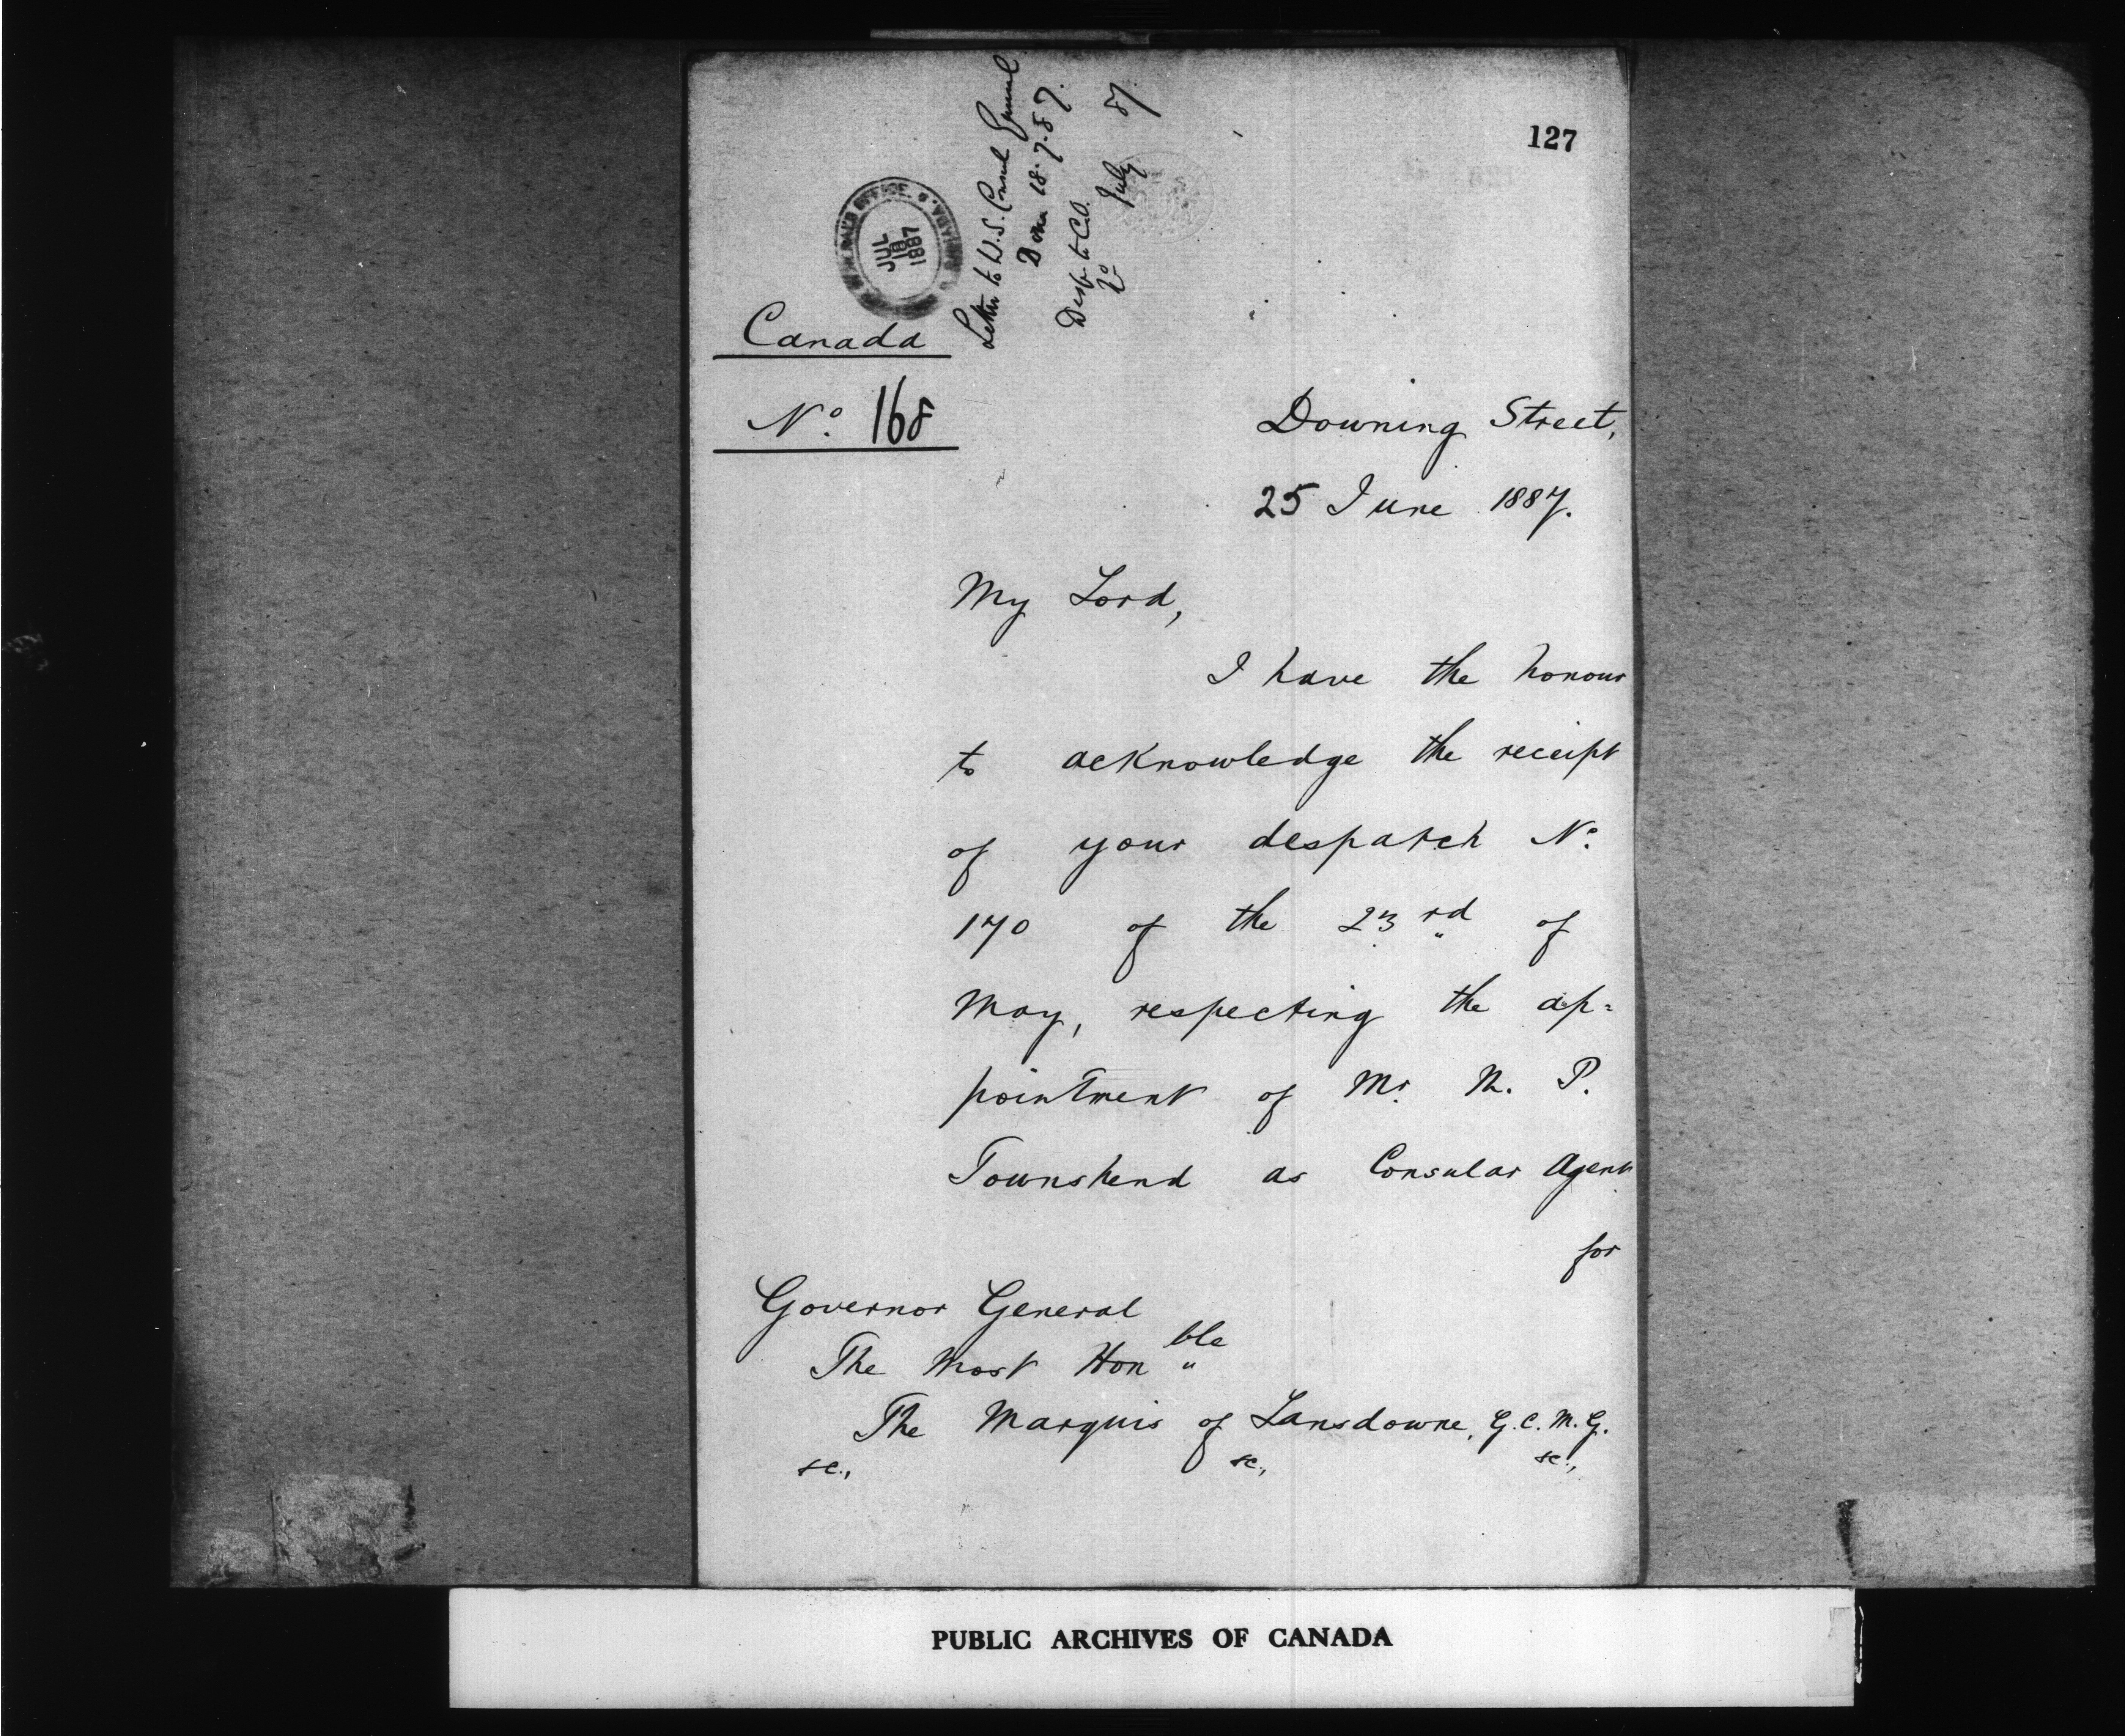 127
JUL
18
1887
Letter to U.S. Consul General
Done 18.7.87.
Desp. to C.O.
No July 87.
Canada
No. 168
Downing Street,
25 June 1887.
My Lord,
I have the honour
to acknowledge the receipt
of your despatch No.
170 of the 23rd of
May, respecting the ap=
pointment of Mr. M. P.
Townshend as Consular Agent
for
Governor General
The Most Honble
The Marquis of Lansdowne, G.C.M.G.
&c., &c., &c.,
PUBLIC ARCHIVES OF CANADA